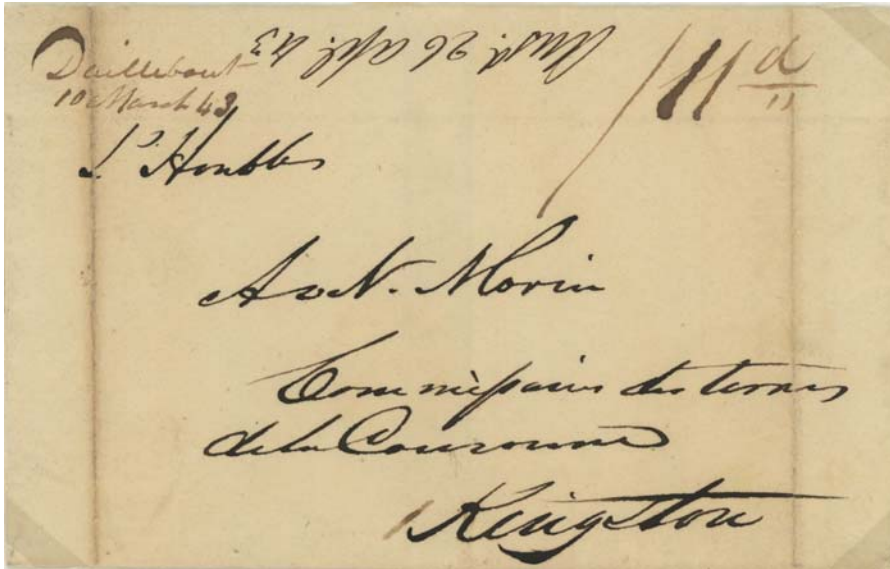 Daillebout
10 March 43
Ansd. 26 Apl. 43
/11 d
L'Honble
A. N. Morin
Commissaire des terres
de la Couronne
Kingston